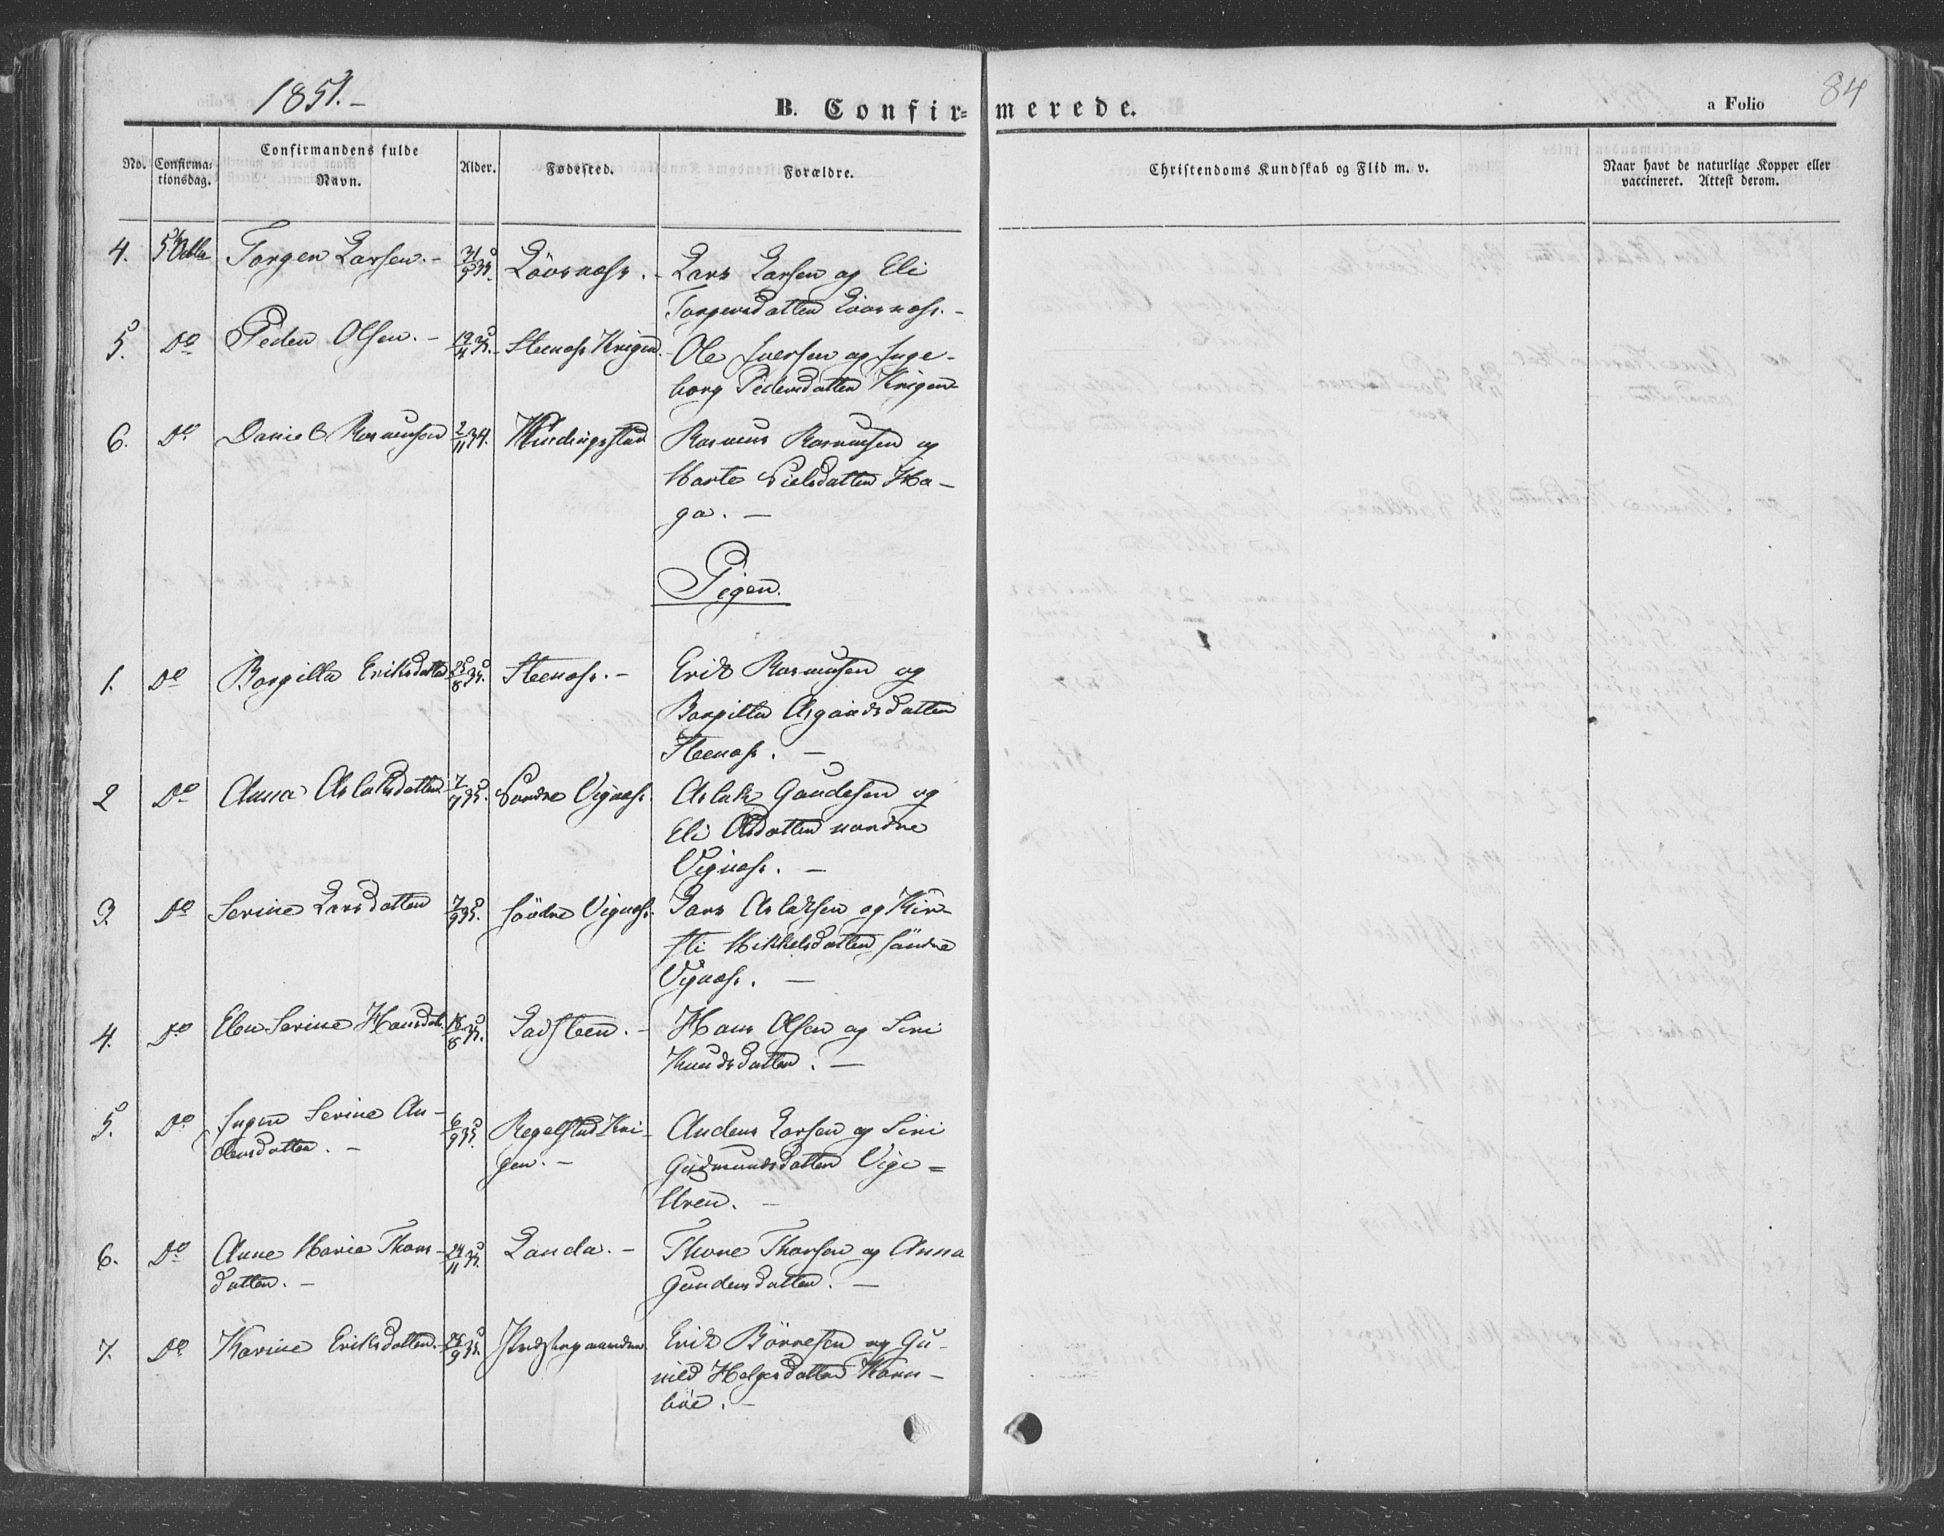 1851.-
B. Confir=
merede.
a Folio
84
No.
Confirma=
tionsdag.
Confirmandens fulde
Navn.
Alder.
Fødested.
Forældre.
Christendoms Kundskab og Flid m. v.
Naar havt de naturlige Kopper eller
vaccineret. Attest derom.
4. 5 Torger Larsen.- 31/5 35. Lars Larsen og Eli
Torgersdatter
5. Do Peder Olsen.- 19/4 35. Steenass Krigen. Ole Iversen og Inge-
borg Pedersdatter Krigen
6. Do Daniel Rasmusen 2/11 34. Rasmus Rasmusen og
Marte Nielsdatter Ha-
ga.-
Piger.
1. Do Bergitta Eriksdatter 25/8 35. Steenass.- Erik Rasmusen og
Bergitta Asgautsdatter
Steenass.-
2 Do Anna Aslaksdatter 7/9 35. Søndre Vignass. Aslak Gaudesen og
Eli Olsdatter nordre
Vignass.-
3. Do Serine Larsdatter 7/9 35. søndre Vignass. Lars Aslaksen og Kir-
sti Mikkelsdatter søndre
Vignass.-
4. Do Elen Serine Hansdat. 18/8 35. Ladsteen.- Hans Olsen og Siri
Knudsdatter.-
5. Do Inger Serine An-
dersdatter.- 6/9 35. Regelstad Kri-
gen.- Anders Larsen og Siri
Gudmundsdatter Vige-
6. Do Anne Marie Thors-
datter.- 24/11 35. Landa.- Thore Thorsen og Anna
Gundersdatter.-
7. Do Karine Eriksdatter. 25/9 35. Erik Børresen og Gu-
nild Helgesdatter Korn-
bøe.-